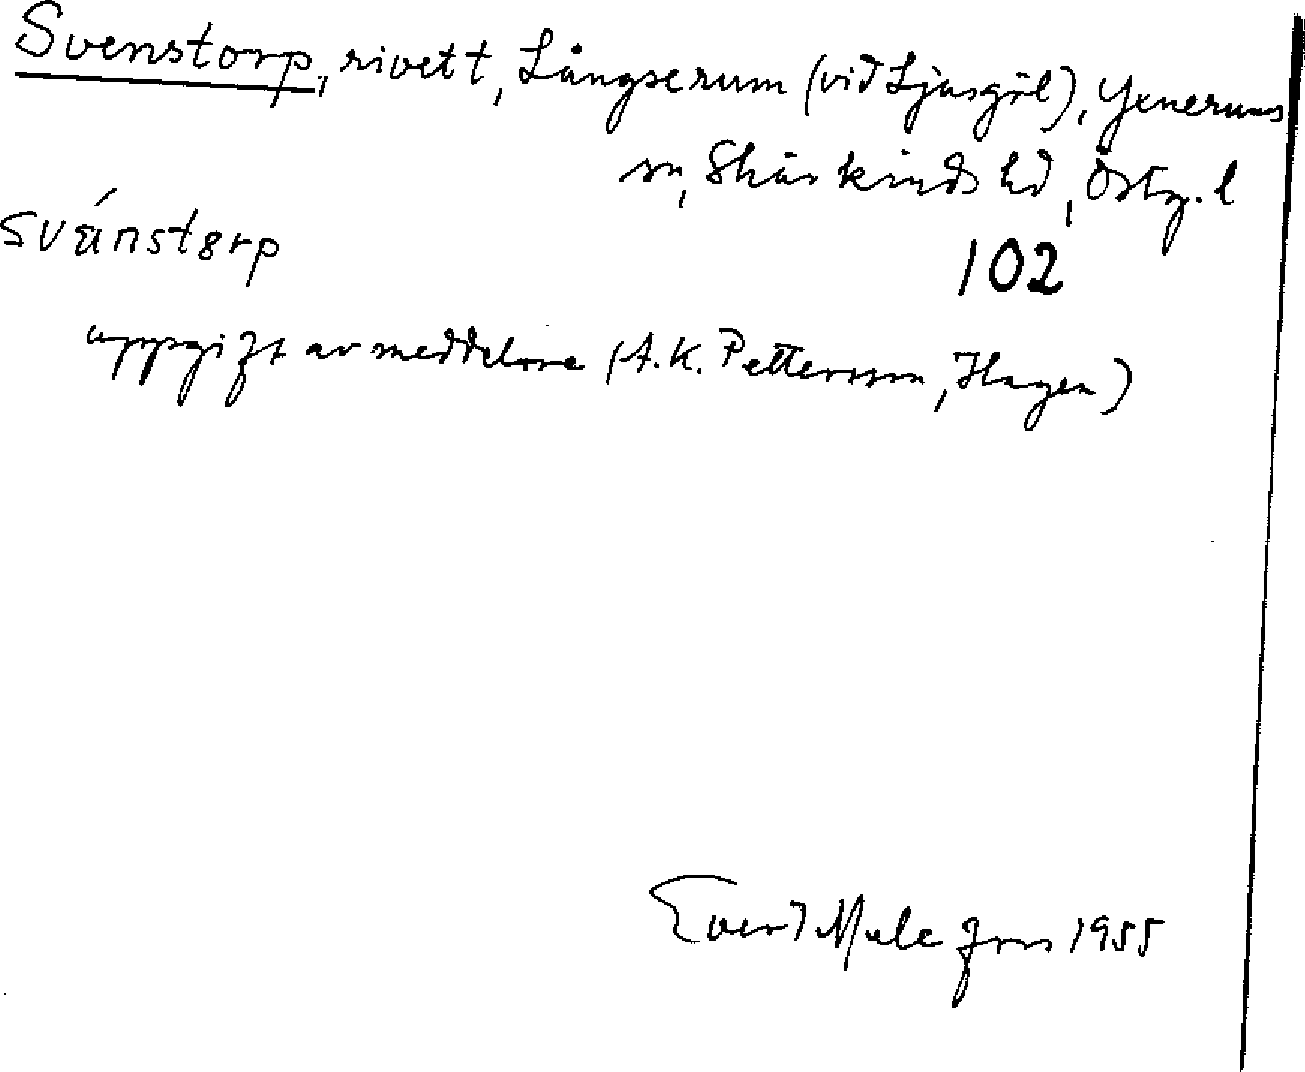 Svenstorp, rivet t, Långserum (vid Ljusgöl), Yxnerums
sn, Skärkinds hd, Östg. l
svä́nstȣrp
102
uppgift av meddelare (A.K. Pettersson, Hagen)
Evert Melefors 1955